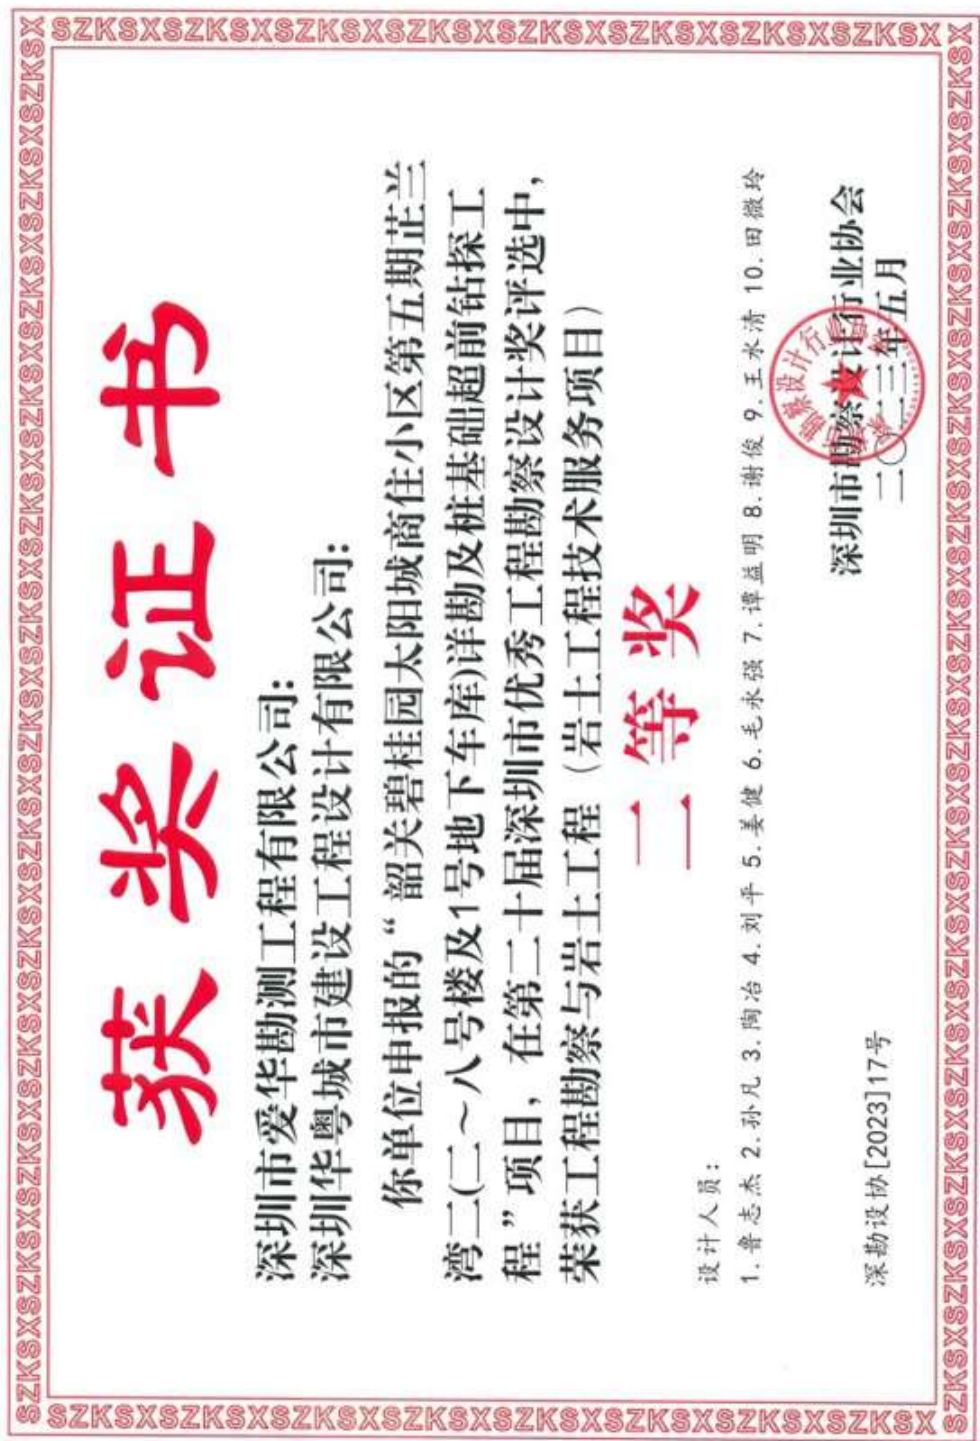 获奖证书
深圳市爱华勘测工程有限公司:
深圳华粤城市建设工程设计有限公司:
你单位申报的“韶关碧桂园太阳城商住小区第五期芷兰
湾二(二～八号楼及1号地下车库)详勘及桩基础超前钻探工
程”项目，在第二十届深圳市优秀工程勘察设计奖评选中，
荣获工程勘察与岩土工程（岩土工程技术服务项目）
二等奖
设计人员:
1.鲁志杰 2.孙凡 3.陶冶 4.刘平 5.姜健 6.毛永强 7.谭益明 8.谢俊 9.王水清 10.田微玲
深圳市勘察设计行业协会
二〇二三年五月
深勘设协[2023]17号